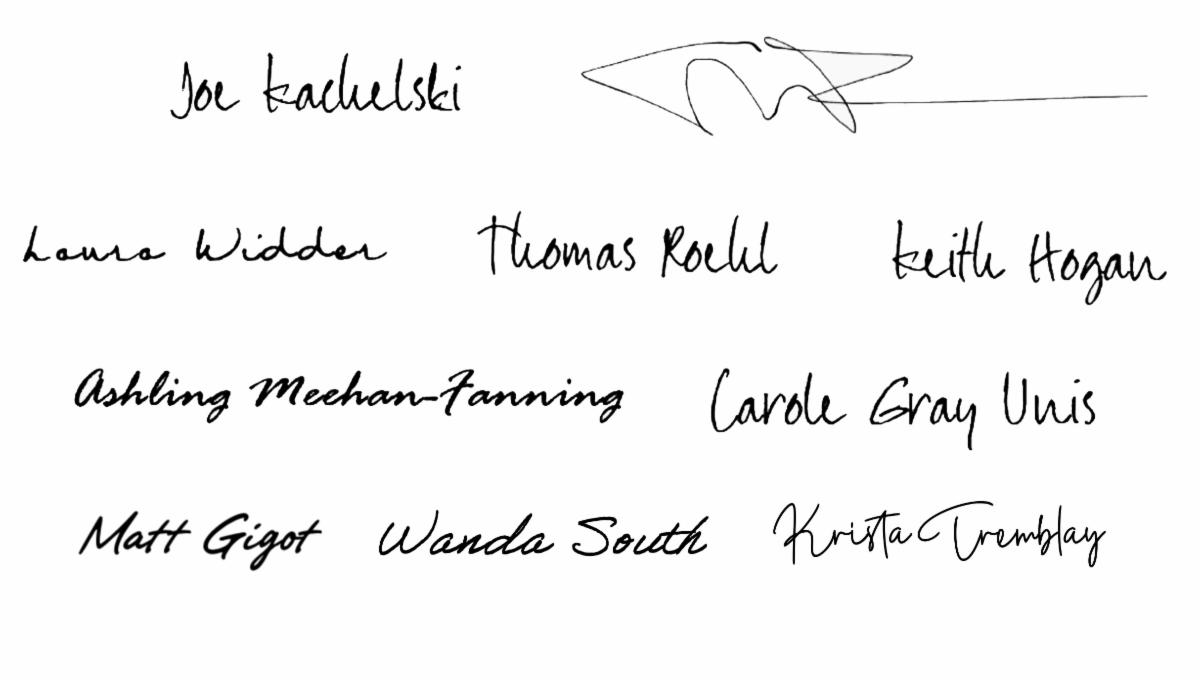 Joe Kachelski
Laura Widder Thomas Roehl Keith Hogan
Ashling Meehan-Fanning Carole Gray Unis
Matt Gigot Wanda South Krista Tremblay